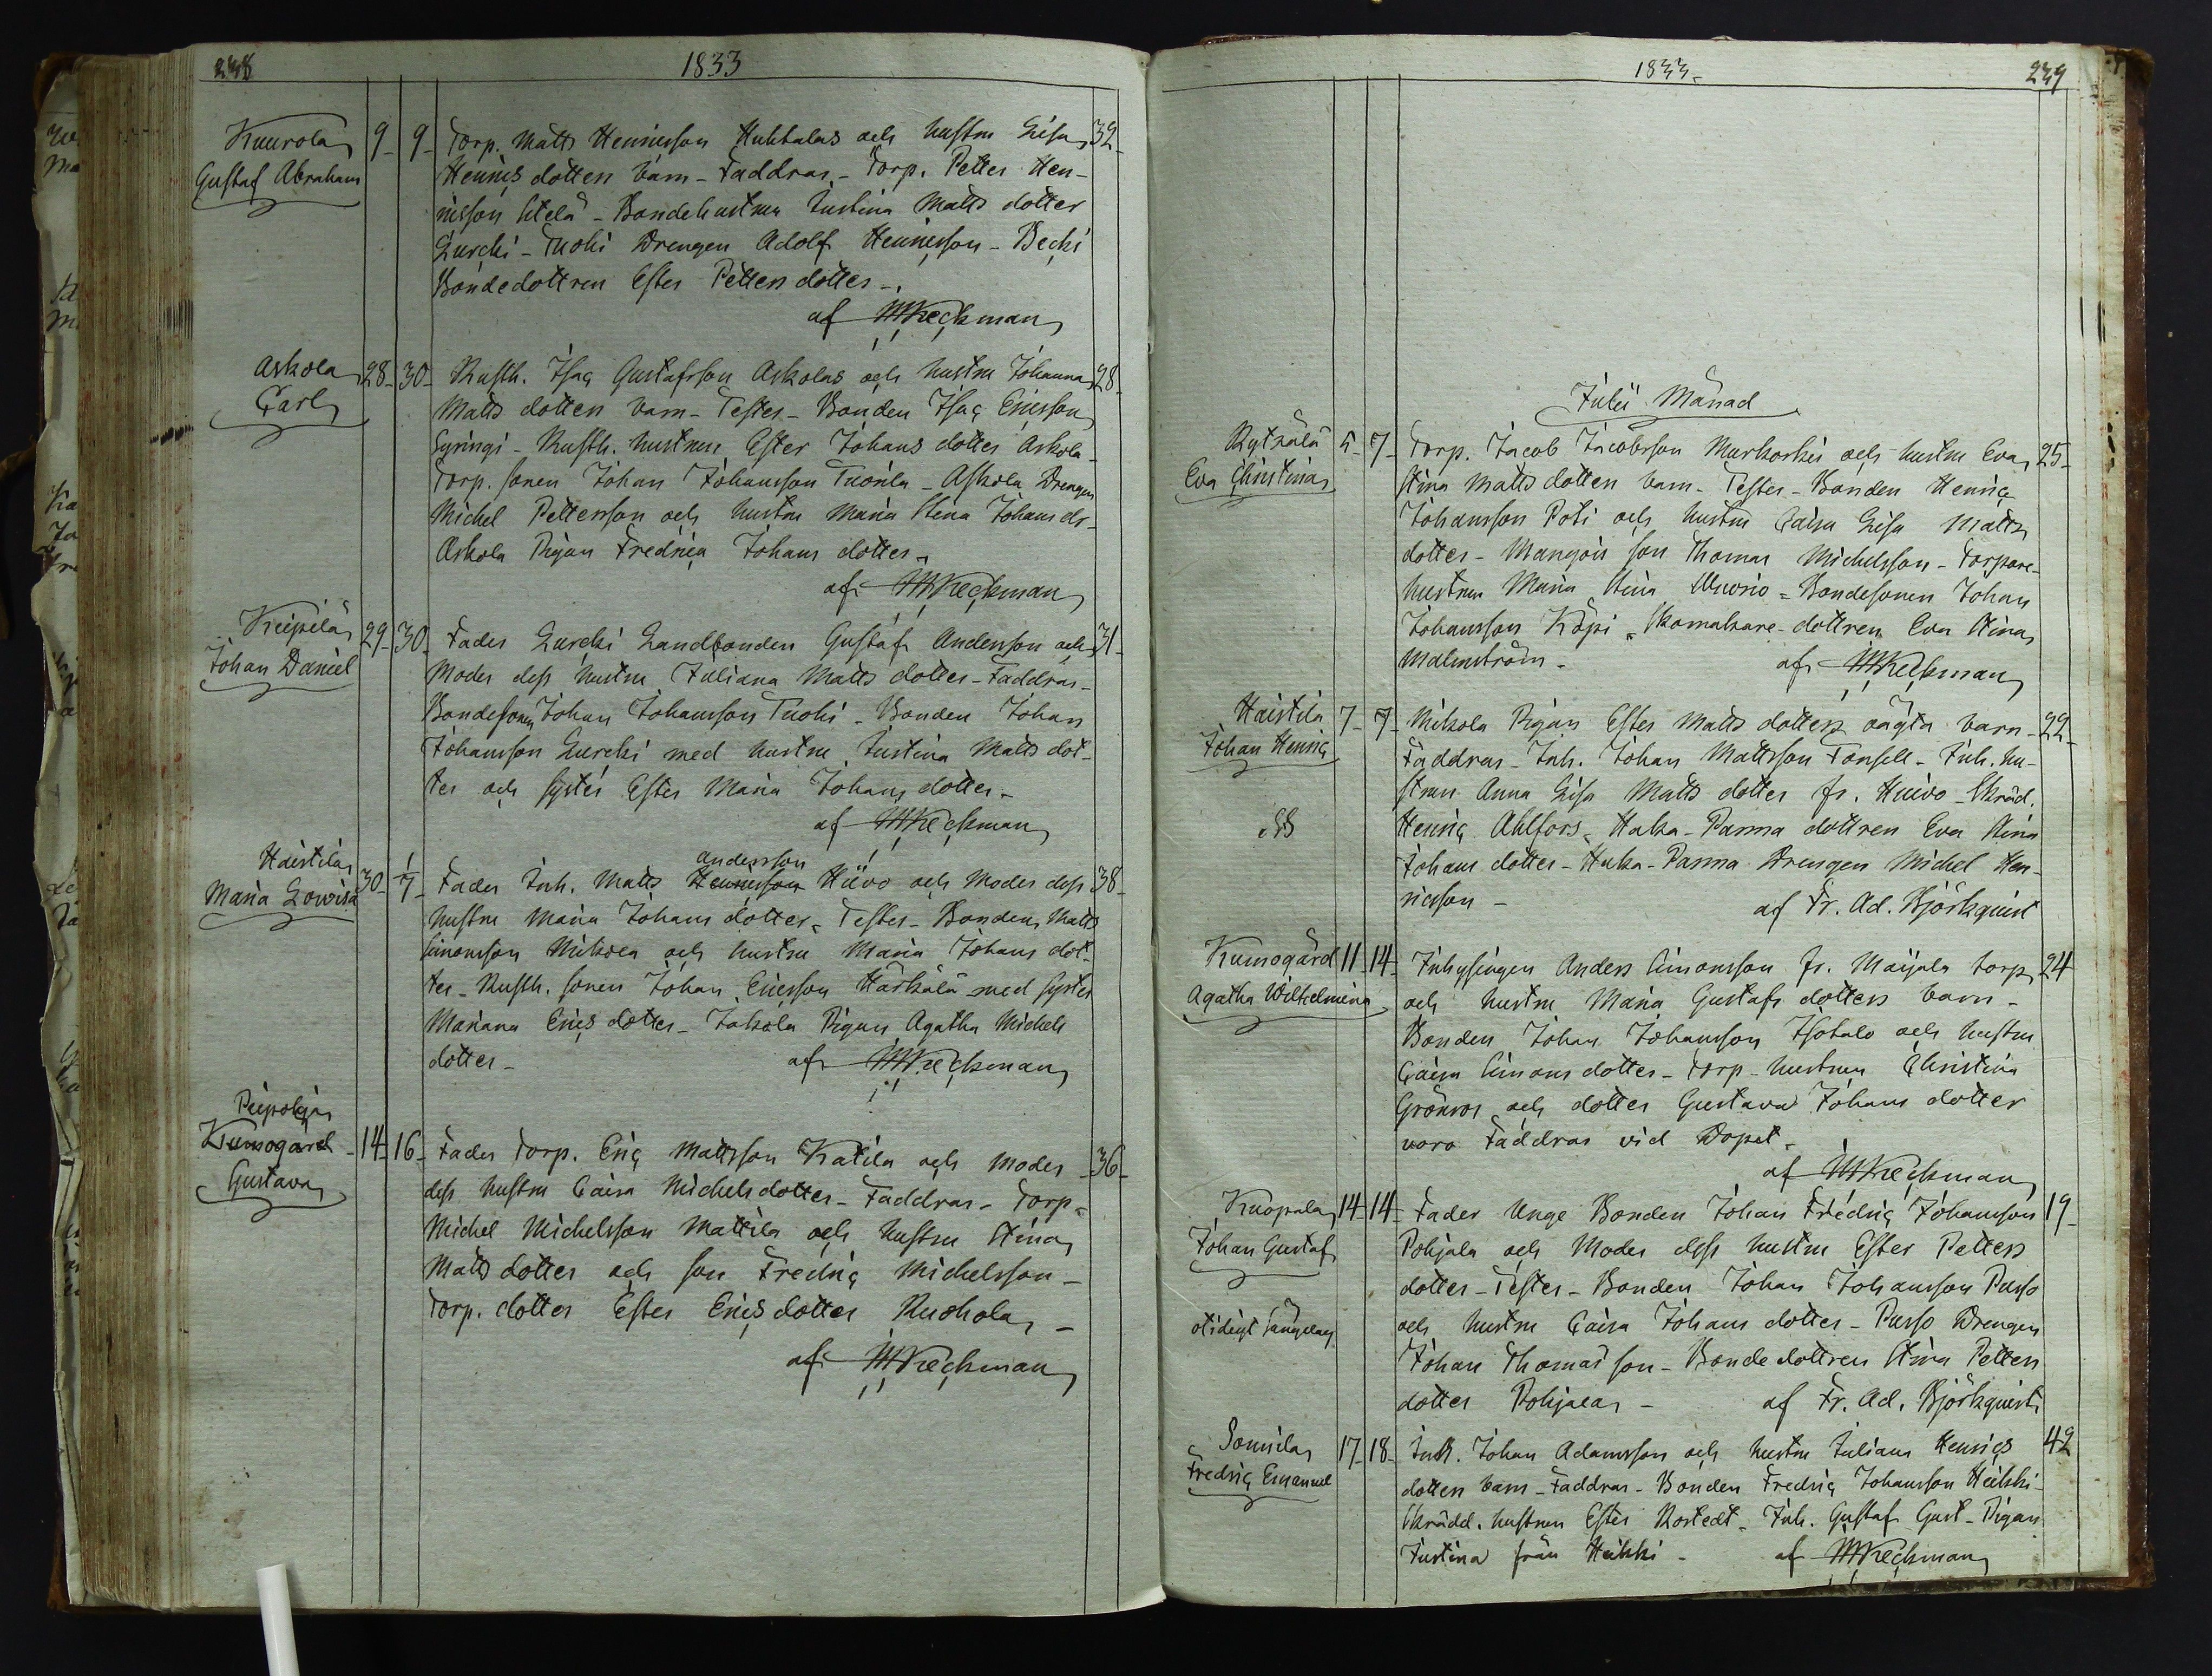 238
1833
Kuurola 9 9 Torp. Matts Henricsson Huhtalas och hustru Lisa 32
Gustaf Abraham Henrics dotters barn - Faddrar - Torp. Petter Hen-
ricsson - Bondehustrun Justina Matts dotter
Lurcki - Tuoki Drengen Adolf Henricsson - Becki
Bondedottren Ester Petters dotter -
af MKeckman
Askola 28 30 Rusth. Isac Gustafsson Askolas och hustru Johanna 28
Carl Matts dotters barn - Testes - Bonden Isac Ericsson
Syringi - Rusth. hustrun Ester Johans dotter Askola -
Torp. sonen Johan Johansson Tuorila - Askola Drengen
Michel Pettersson och hustru Maria Stena Johans dr -
Askola Pigan Fredrica Johans dotter -
af MKeckman
Keipilä 29 30 Fader Lurcki Landbonden Gustaf Andersson och 31
Johan Daniel Moder dess hustru Juliana Matts dotter - Faddrar -
Bondesonen Johan Johansson Tuoki - Bonden Johan
Johansson Lurcki med hustru Justina Matts dot-
ter och syster Ester Maria Johans dotter -
af MKeckman
Haistila 30 1/7 Fader Inh. Matts Henricsson Andersson Hiivo och Moder dess 38
Maria Lowisa hustru Maria Johans dotter - Testes - Bonden Matts
Simonsson Mikola och hustru Maria Johans dot-
ter - Rusth. sonen Johan Ericsson Härkälä med syster
Mariana Erics dotter - Jakola Pigan Agatha Michels
dotter - af MKeckman
Peipohja
Kumogård 14 16 Fader Torp. Eric Mattsson Katila och Moder 36
Gustava dess hustru Caisa Michelsdotter - Faddrar - Torp.
Michel Michelsson Mattila och hustru Stina
Matts dotter och son Fredric Michelsson -
Torp. dotter Ester Erics dotter Ruohola -
af MKeckman
1833 -
239
Julii Månad
Kytzälä 5 7 Torp. Jacob Jacobsson Murkorkei och hustru Eva 25
Eva Christina Stina Matts dotters barn - Testes - Bonden Henric
Johansson Poti och hustru Caisa Lisa Matts
dotter - son Thomas Michelsson - Torpare-
hustrun Maria Stina Wuorio - Bondesonen Johan
Johansson Köpi - Skomakare-dottren Eva Stina
Malmström - af MKeckman
Haistila 7 7 Mikola Pigan Ester Matts dotters oägta barn - 22
Johan Henric Faddrar - Inh. Johan Mattsson Fonsell - Inh. hu-
strun Anna Lisa Matts dotter fr. Hiivo - Skräd.
Henric Ahlfors - Haka-Panna dottren Eva Stina
Johans dotter - Haka-Panna Drengen Michel Hen-
ricsson - af Fr. Ad. Björkquist
Kumogård 11 14 Inhysingen Anders Simonsson fr. Maijala torp 24
Agatha Wilhelmina och hustru Maria Gustafs dotters barn -
Bonden Johan Johansson Isotalo och hustru
Caisa Simons dotter - Torp-hustrun Christina
Grönroos och dotter Gustava Johans dotter
voro Faddrar vid Dopet -
af MKeckman
Kuopala 14 14 Fader Unge Bonden Johan Fredric Johansson 19
Johan Gustaf Pohjala och Moder dess hustru Ester Petters
dotter - Testes - Bonden Johan Johansson Pusso
otidigt sängelag och hustru Caisa Johans dotter - Pusso Drengen
Johan Thomas son - Bondedottren Stina Petters
dotter Pohjala - af Fr. Ad. Björkquist
Sonnila 17 18 Inh. Johan Adamsson och hustru Juliana Henrics 42
Fredric Emanuel dotters barn - Faddrar - Bonden Fredric Johansson Heikki -
Skrädd. hustrun Ester Rostedt - Inh. Gustaf Gust - Pigan
Justina från Heikki - af MKeckman